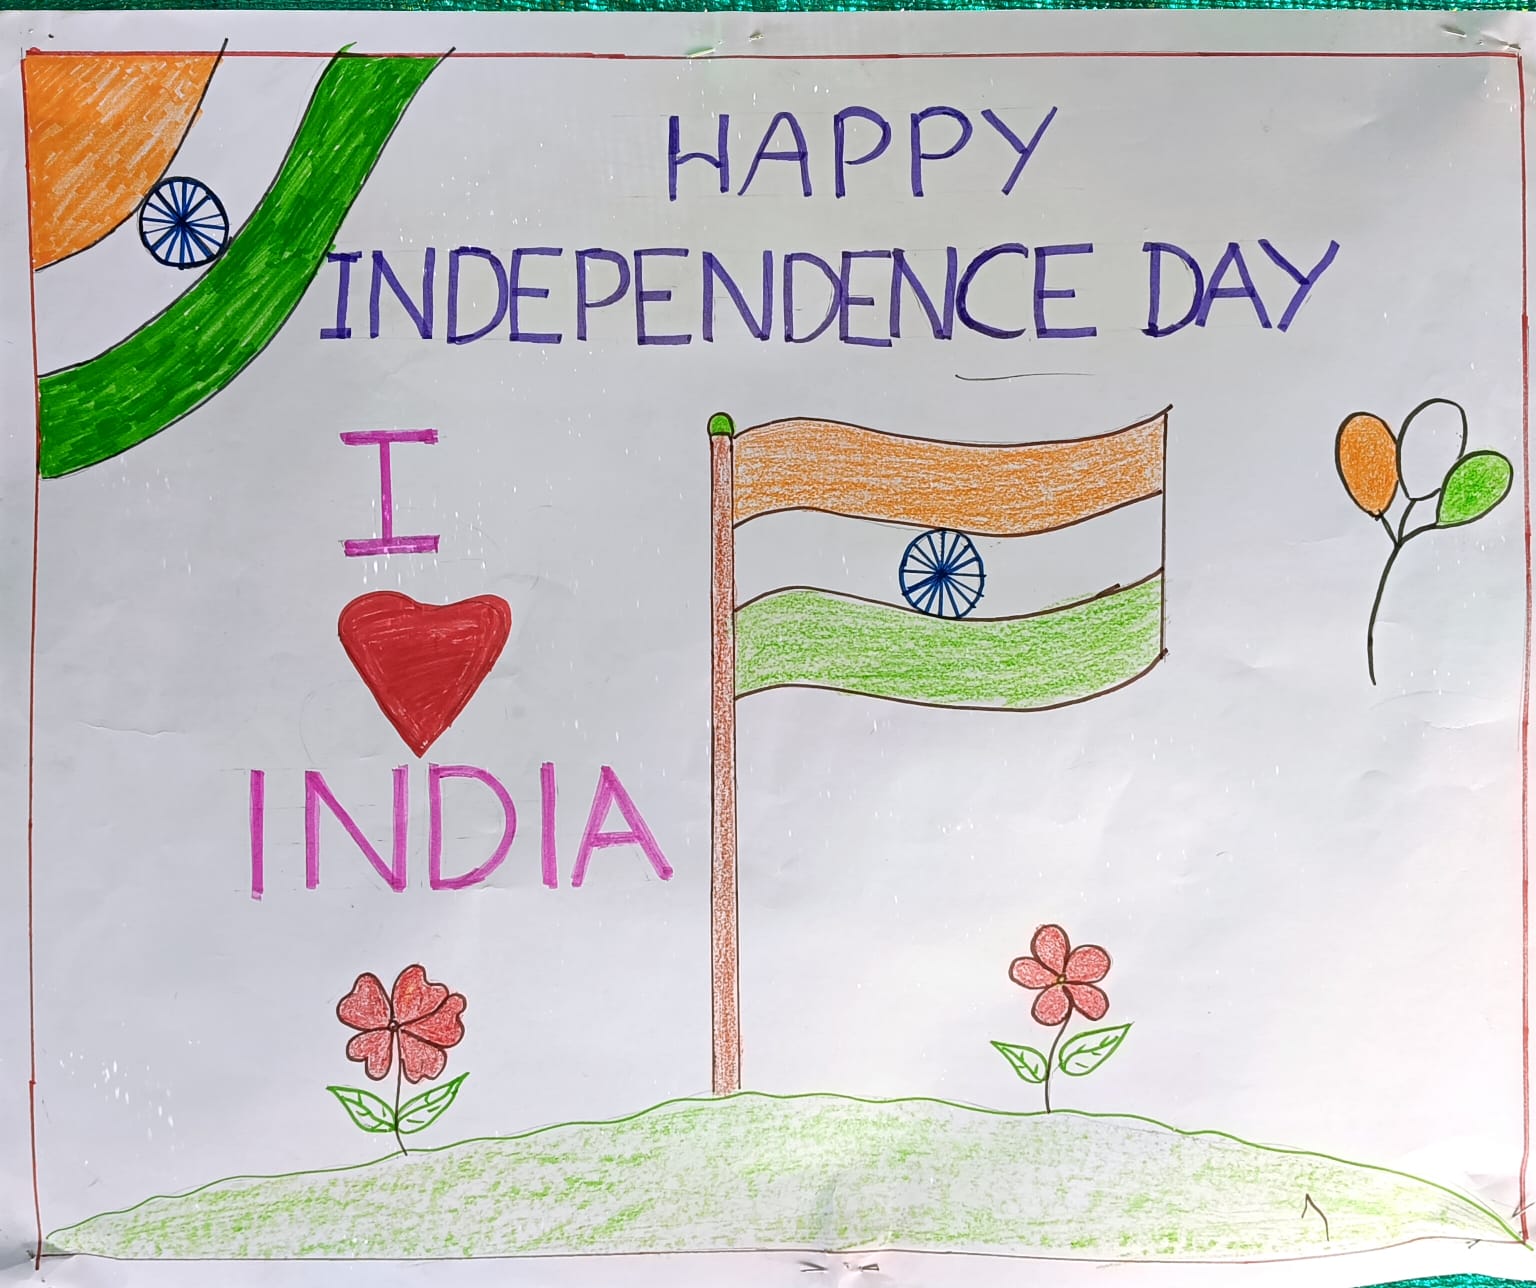 HAPPY
INDEPENDENCE DAY
I
INDIA